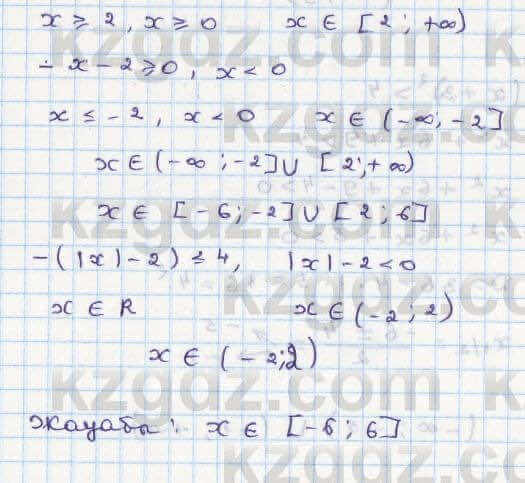 x ≥ 2, x ≥ 0 x ∈ [2; +∞)
- x - 2 ≥ 0, x < 0
x ≤ -2, x < 0 x ∈ (-∞; -2]
x ∈ (-∞; -2] ∪ [2; +∞)
x ∈ [-6; -2] ∪ [2; 6]
-(|x| - 2) ≤ 4, |x| - 2 < 0
x ∈ R x ∈ (-2; 2)
x ∈ (-2; 2)
Жауабы: x ∈ [-6; 6]
kzgdz.com